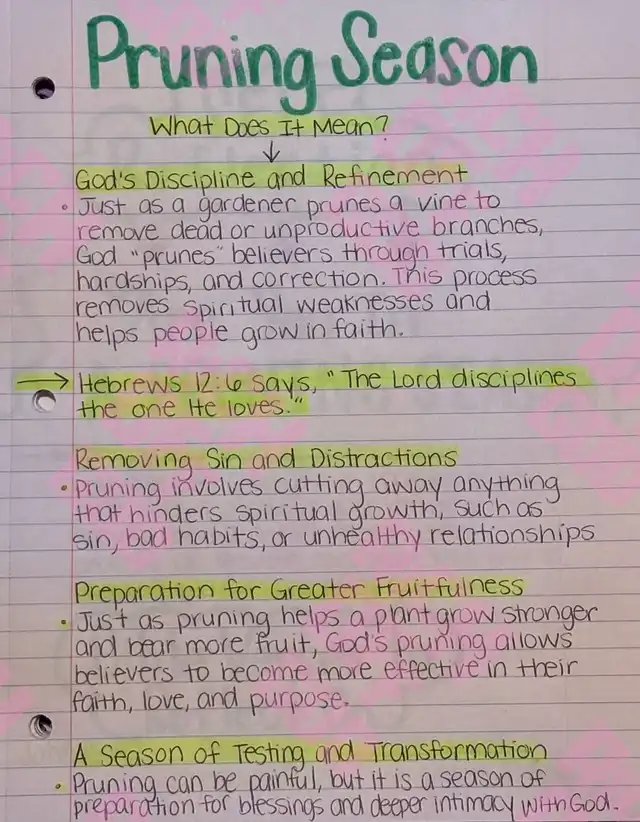 Pruning Season
What Does It Mean?
↓
God's Discipline and Refinement
• Just as a gardener prunes a vine to
remove dead or unproductive branches,
God "prunes" believers through trials,
hardships, and correction. This process
removes spiritual weaknesses and
helps people grow in faith.
→ Hebrews 12:6 says, "The Lord disciplines
the one He loves."
Removing Sin and Distractions
• Pruning involves cutting away anything
that hinders spiritual growth, such as
sin, bad habits, or unhealthy relationships
Preparation for Greater Fruitfulness
• Just as pruning helps a plant grow stronger
and bear more fruit, God's pruning allows
believers to become more effective in their
faith, love, and purpose.
A Season of Testing and Transformation
• Pruning can be painful, but it is a season of
preparation for blessings and deeper intimacy with God.